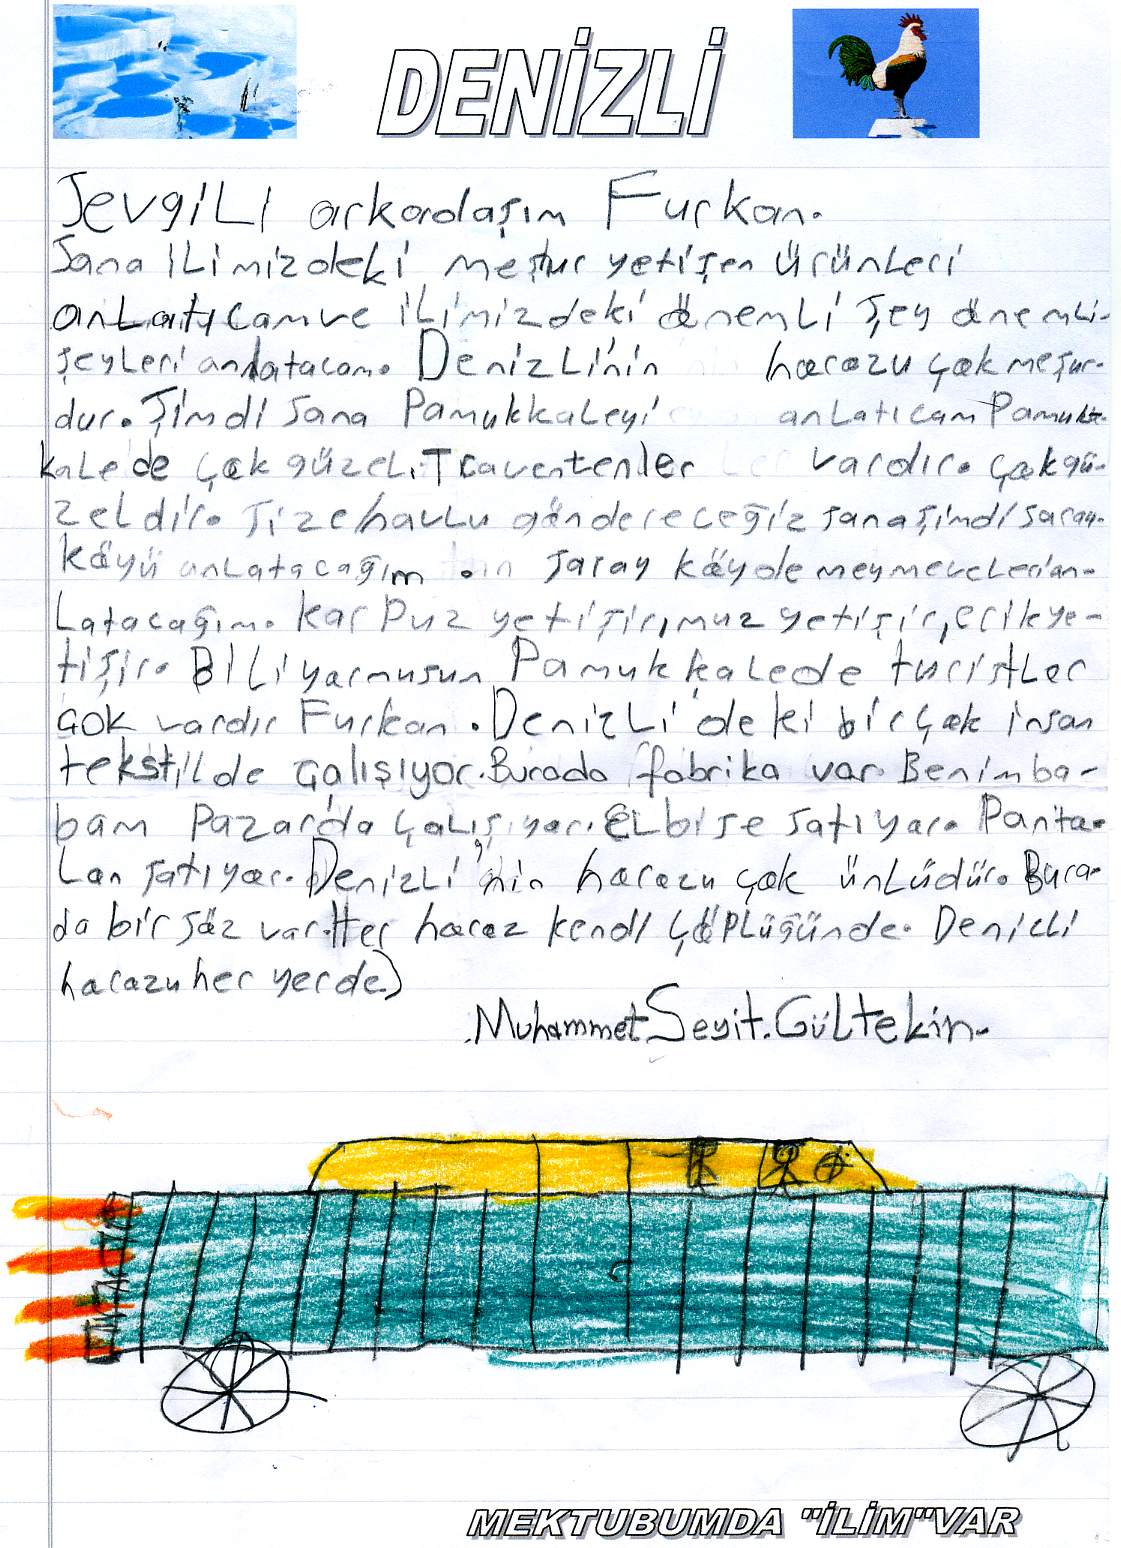 DENİZLİ
Sevgili arkadaşım Furkan.
Sana ilimizdeki meşhur yetişen ürünleri
anlatıcam ve ilimizdeki önemli şey önemli-
şeyleri anlatacam. Denizli'nin horozu çok meşur-
dur. Şimdi sana Pamukkaleyi anlatıcam Pamuk-
kalede çok güzel, Traventenler vardır. çok gü-
zeldir. Size havlu göndereceğiz sana şimdi saray-
köyü anlatacağım. saray köyde meymeveleri an-
latacağım. karpuz yetişir, muz yetişir, erik ye-
tişir. Biliyormusun Pamukkalede turistler
çok vardır Furkan. Denizli'deki birçok insan
tekstilde çalışıyor. Burada fabrika var. Benim ba-
bam Pazar'da çalışıyor. Elbise satıyor. Panto-
lon satıyor. Denizli'nin horozu çok ünlüdür. Bura-
da bir söz var. Her horoz kendi çöplüğünde. Denizli
horozu her yerde)
Muhammet Seyit. Gültekin.
MEKTUBUMDA "İLİM" VAR